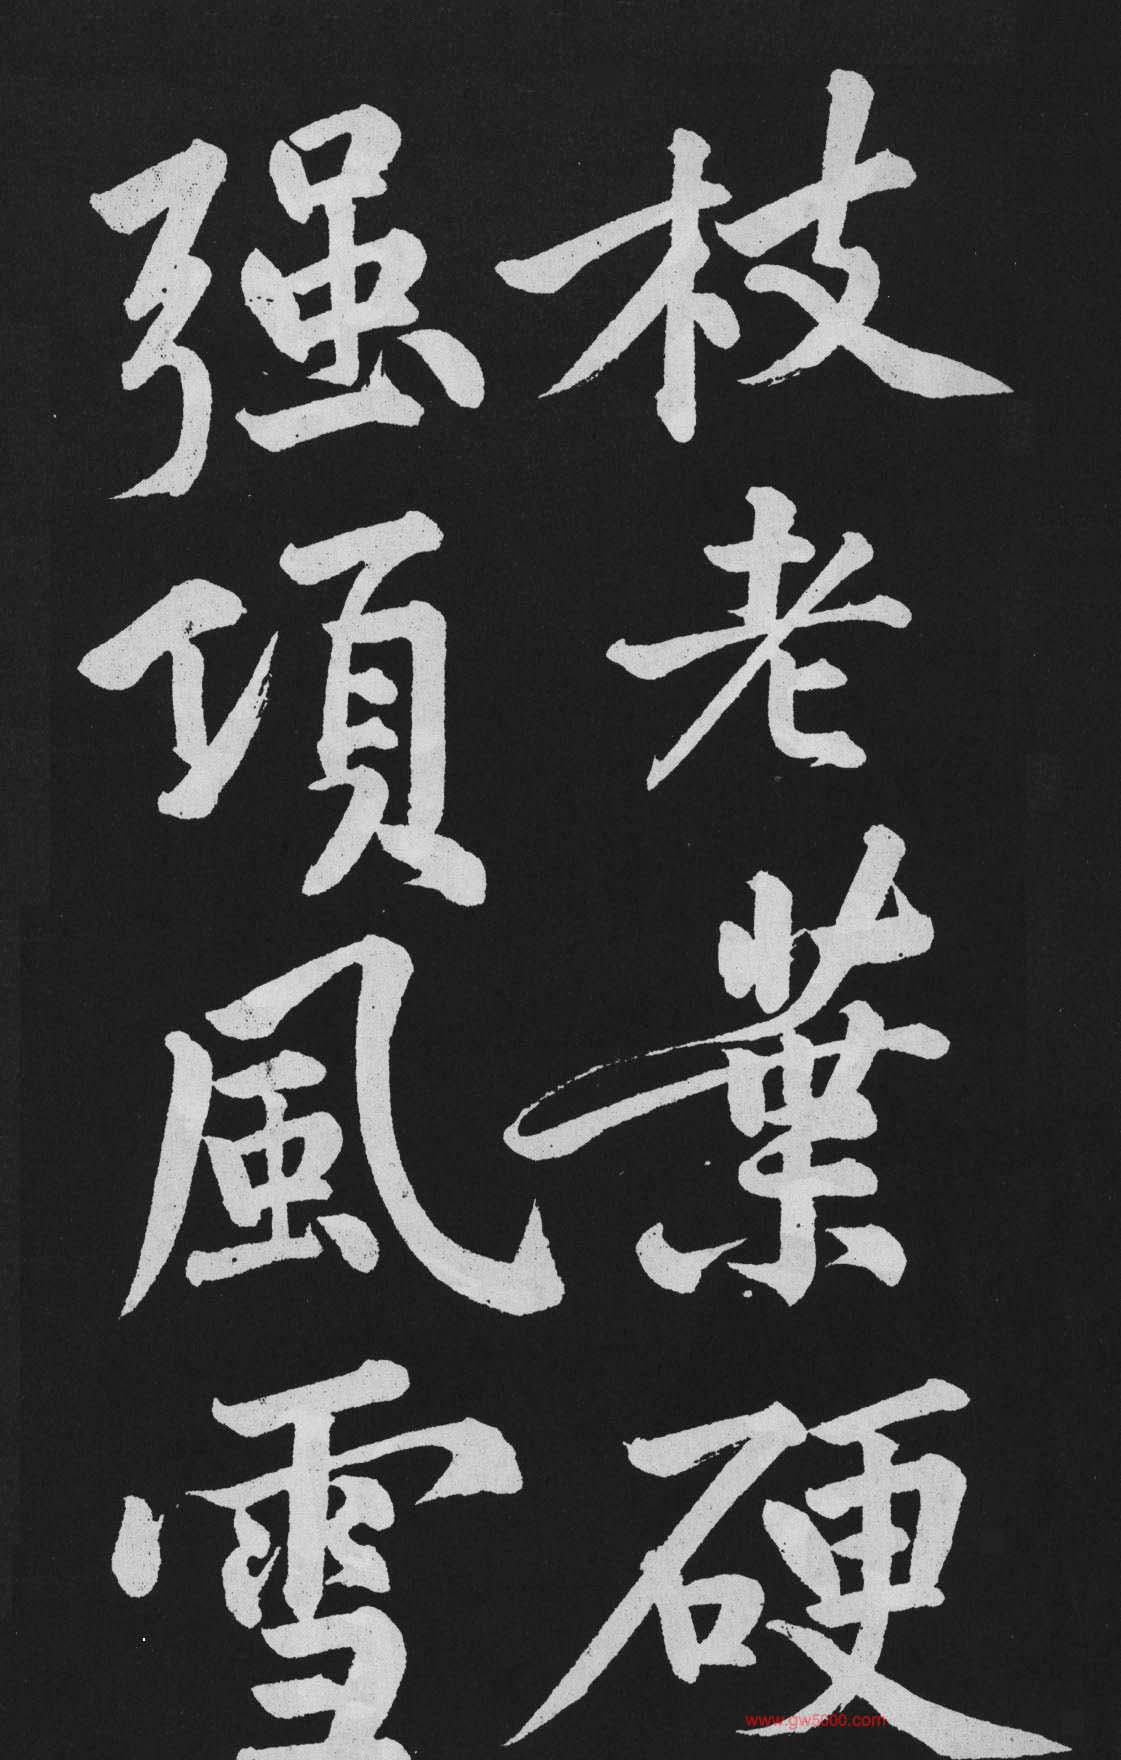 枝老葉硬
强項風雪
www.gw5000.com